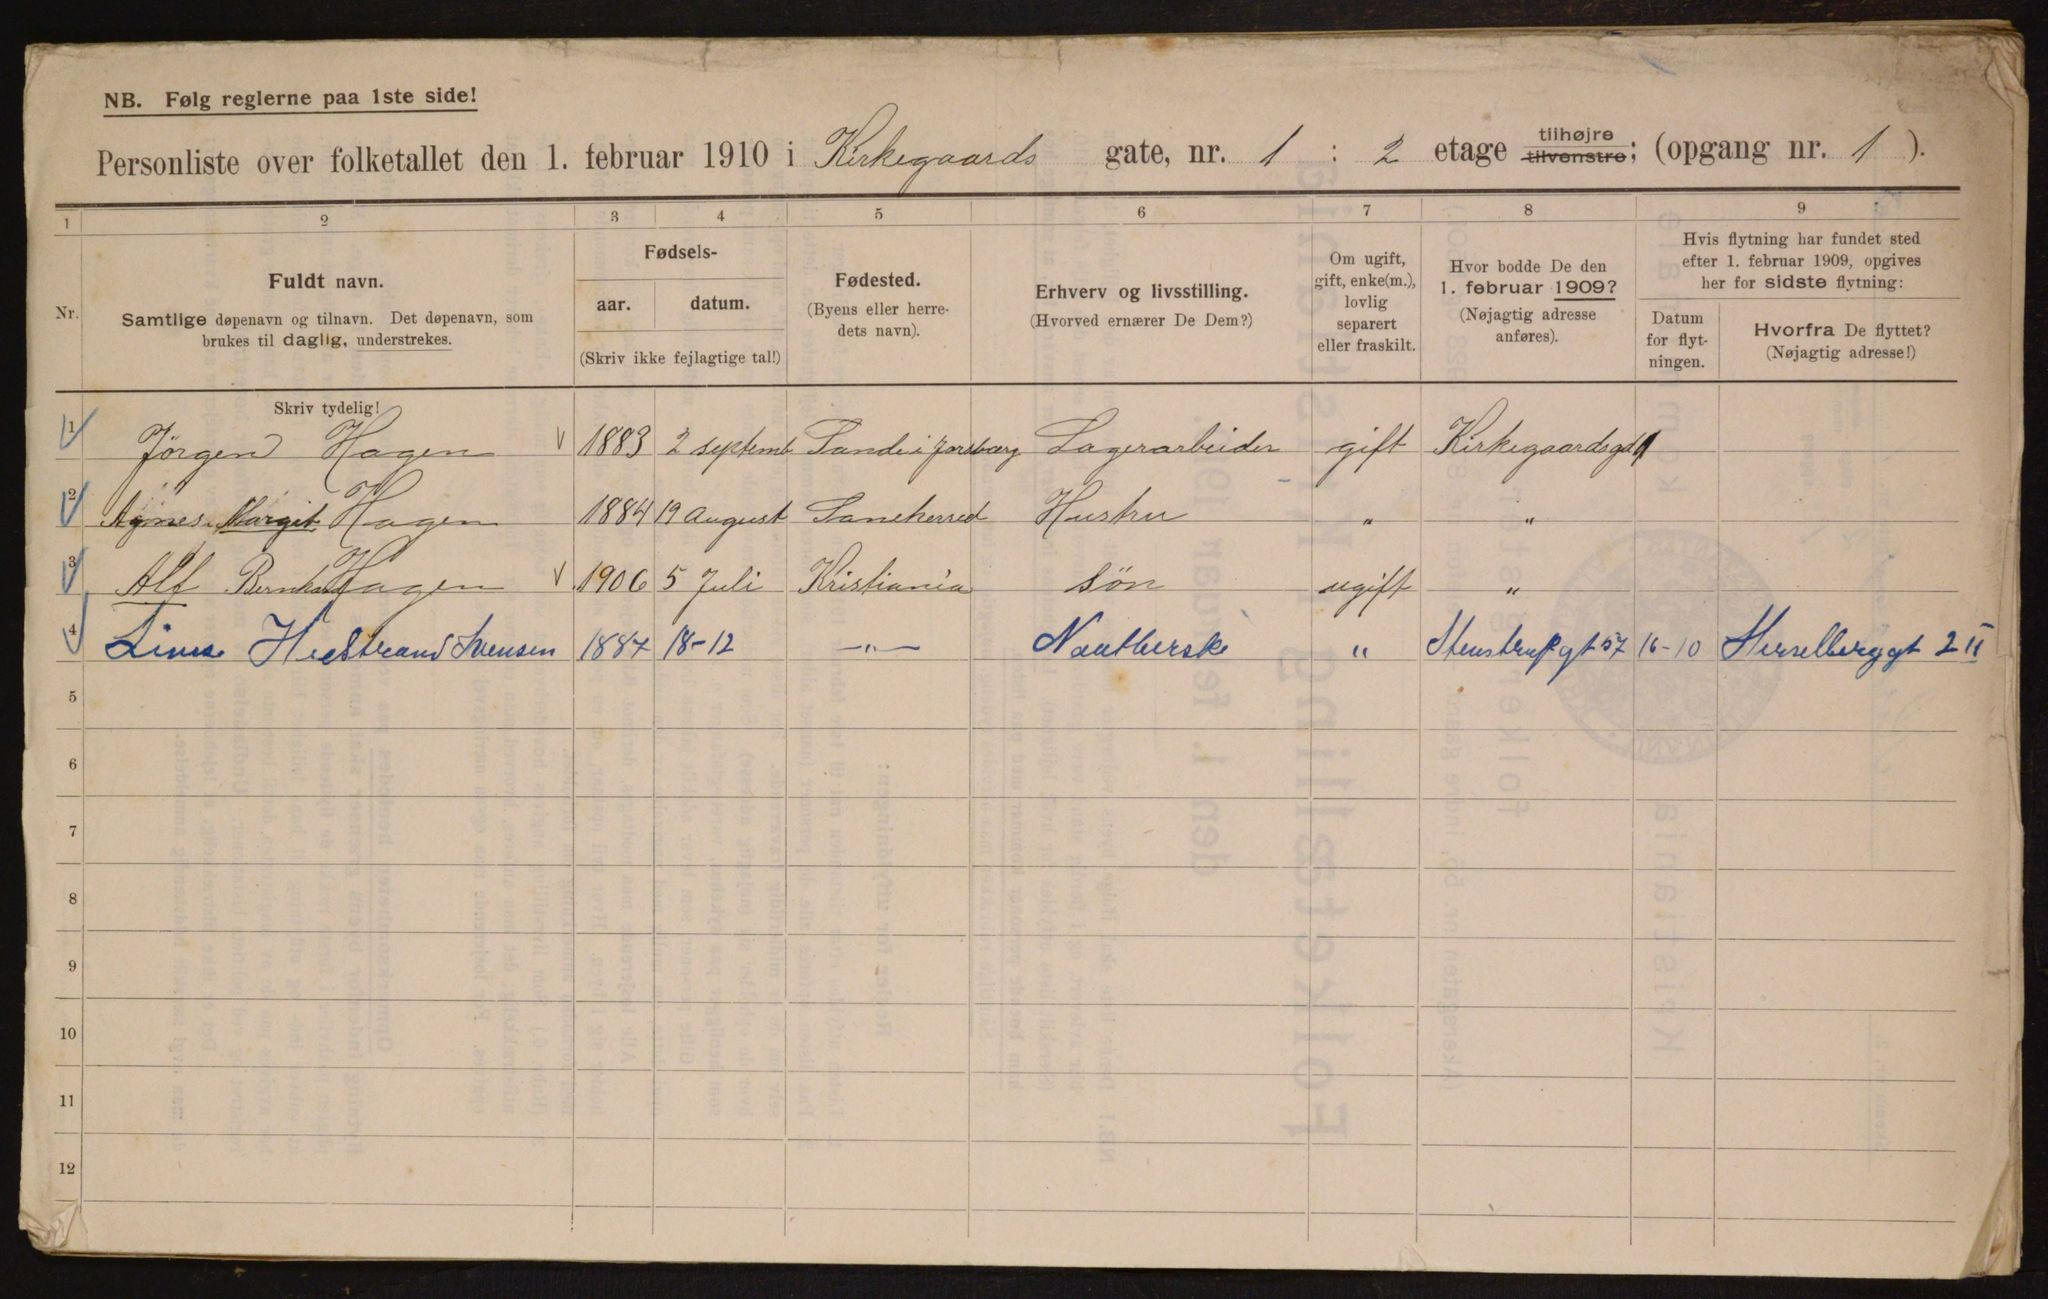 NB. Følg reglerne paa 1ste side!
Personliste over folketallet den 1. februar 1910 i Kirkegaards gate, nr. 1 : 2 etage tilhøjre tilvenstre; (opgang nr. 1 ).
1 2 3 4 5 6 7 8 9
Nr.
Fuldt navn.
Samtlige døpenavn og tilnavn. Det døpenavn, som
brukes til daglig, understrekes.
Fødsels-
aar. datum.
(Skriv ikke fejlagtige tal!)
Fødested.
(Byens eller herre-
dets navn).
Erhverv og livsstilling.
(Hvorved ernærer De Dem?)
Om ugift,
gift, enke(m.),
lovlig
separert
eller fraskilt.
Hvor bodde De den
1. februar 1909?
(Nøjagtig adresse
anføres).
Hvis flytning har fundet sted
efter 1. februar 1909, opgives
her for sidste flytning:
Datum
for flyt-
ningen.
Hvorfra De flyttet?
(Nøjagtig adresse!)
Skriv tydelig!
1 Jörgen Hagen 1883 2 septemb Sande i Jarsberg Lagerarbeider gift Kirkegaardsgd 1
2 Agnes Margit Hagen 1884 19 August Saneherred Hustru " "
3 Alf Bernhard Hagen 1906 5 Juli Kristiania Sön ugift "
4 Svensen 1887 18-12 -"- " Stenstrupgt 57 16-10 2 II
5
6
7
8
9
10
11
12